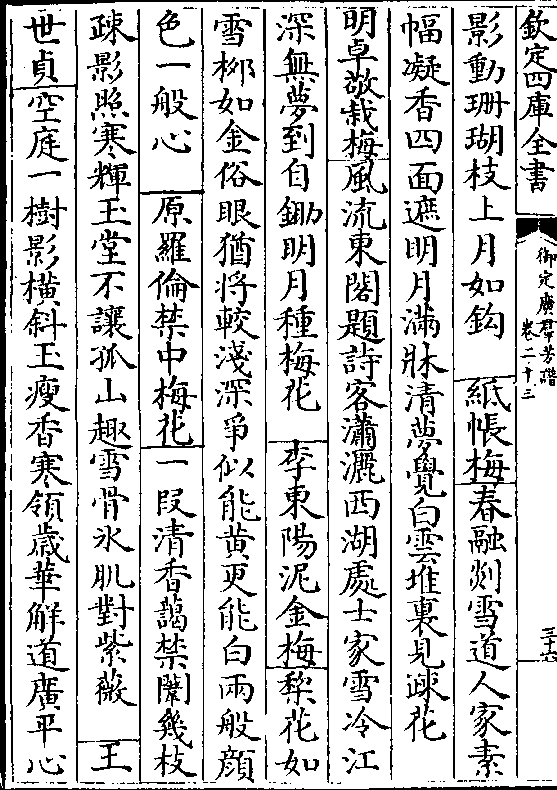 欽定四庫全書
御定廣羣芳譜
卷二十三
三十六
影動珊瑚枝上月如鈎 紙帳梅春融剡雪道人家素
幅凝香四面遮明月滿牀清夢覺白雲堆裏見疎花
明卓敬栽梅風流東閣題詩客瀟灑西湖處士家雪冷江
深無夢到自鋤明月種梅花 李東陽泥金梅梨花如
雪柳如金俗眼猶將較淺深爭似能黄更能白兩般顔
色一般心 原羅倫禁中梅花一段清香藹禁闈幾枝
疎影照寒輝玉堂不讓孤山趣雪骨氷肌對紫薇 王
世貞空庭一樹影橫斜玉瘦香寒領歲華解道廣平心